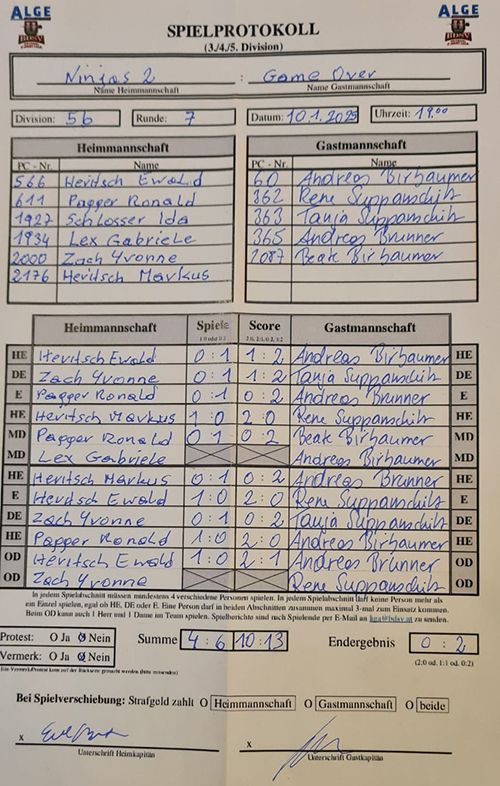 ALGE ALGE
SPIELPROTOKOLL
(3./4./5. Division)
Ninjas 2 : Game Over
Name Heimmannschaft Name Gastmannschaft
Division: 5b Runde: 7 Datum: 10.1.2025 Uhrzeit: 19:00
Heimmannschaft Gastmannschaft
PC - Nr. Name PC - Nr. Name
566 Heritsch Ewald 60 Andreas Birhaumer
611 Pagger Ronald 362 Rene Suppanschitz
1927 Schlosser Ida 363 Tanja Suppanschitz
1934 Lex Gabriele 365 Andreas Brunner
2000 Zach Yvonne 2087 Beate Birhaumer
2176 Heritsch Markus
Heimmannschaft Spiele Score Gastmannschaft
1:0 od 0:1 2:0, 2:1, 0:2, 1:2
HE Heritsch Ewald 0:1 1:2 Andreas Birhaumer HE
DE Zach Yvonne 0:1 1:2 Tanja Suppanschitz DE
E Pagger Ronald 0:1 0:2 Andreas Brunner E
HE Heritsch Markus 1:0 2:0 Rene Suppanschitz HE
MD Pagger Ronald 0:1 0:2 Beate Birhaumer MD
MD Lex Gabriele Andreas Birhaumer MD
HE Heritsch Markus 0:1 0:2 Andreas Brunner HE
E Heritsch Ewald 1:0 2:0 Rene Suppanschitz E
DE Zach Yvonne 0:1 0:2 Tanja Suppanschitz DE
HE Pagger Ronald 1:0 2:0 Andreas Birhaumer HE
OD Heritsch Ewald 1:0 2:1 Andreas Brunner OD
OD Zach Yvonne Rene Suppanschitz OD
In jedem Spielabschnitt müssen mindestens 4 verschiedene Personen spielen. In jedem Spielabschnitt darf keine Person mehr als
ein Einzel spielen, egal ob HE, DE oder E. Eine Person darf in beiden Abschnitten zusammen maximal 3-mal zum Einsatz kommen.
Beim OD kann auch 1 Herr und 1 Dame im Team spielen. Spielberichte sind nach Spielende per E-Mail an liga@bdsv.at zu senden.
Protest: O Ja O Nein Summe 4:6 10:13 Endergebnis 0:2
Vermerk: O Ja O Nein (2:0 od. 1:1 od. 0:2)
Bei Spielverschiebung: Strafgeld zahlt O Heimmannschaft O Gastmannschaft O beide
x x
Unterschrift Heimkapitän Unterschrift Gastkapitän